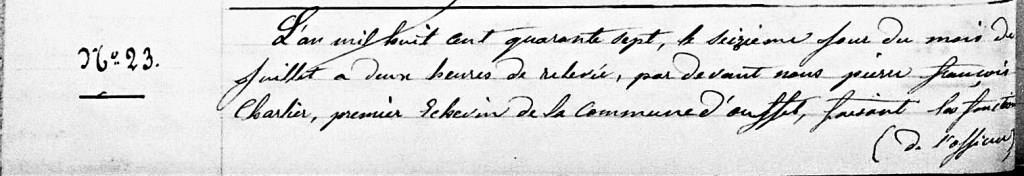 N° 23.
L'an mil huit cent quarante sept, le seizieme jour du mois de
juillet a deux heures de relevée, par devant nous pierre françois
Charlier, premier Echevin de la Commune d'ouffet, faisant les fonction
(de l'officier)